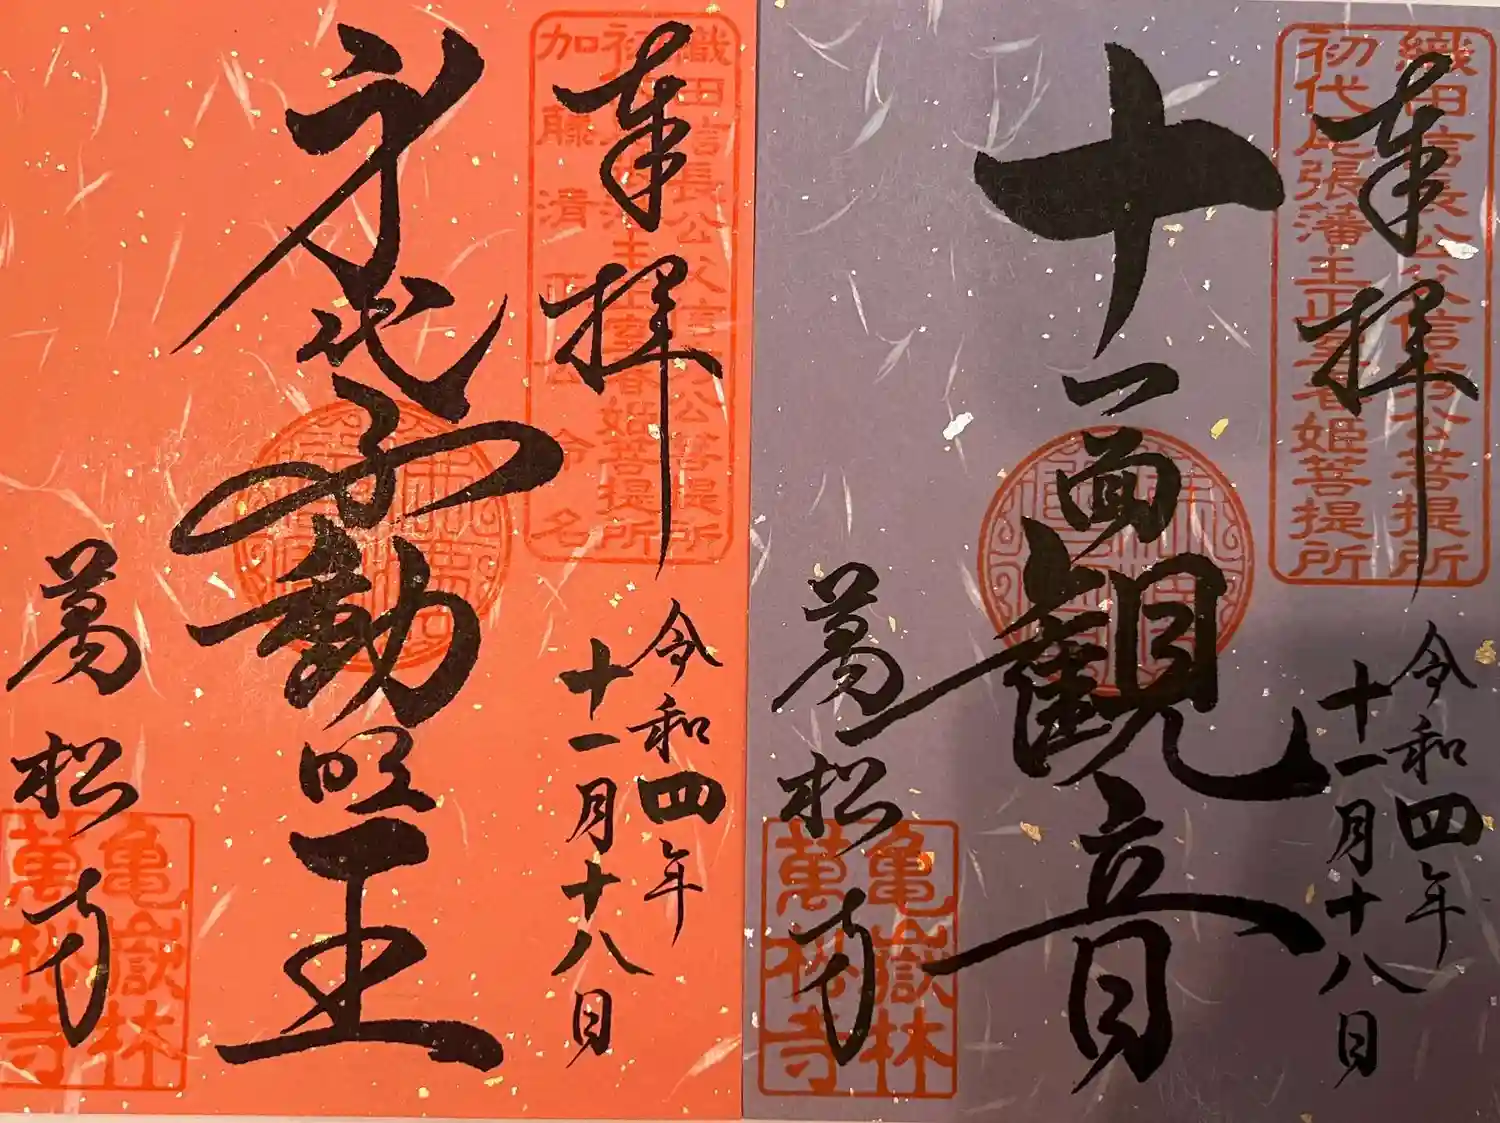 奉拝
織田信長公父信秀公菩提所
初代尾張藩主正室春姫菩提所
令和四年
十一月十八日
十一面観音
萬松寺
亀嶽林
萬松寺
奉拝
織田信長公父信秀公菩提所
初代尾張藩主正室春姫菩提所
加藤清正公命名
令和四年
十一月十八日
身代不動明王
萬松寺
亀嶽林
萬松寺